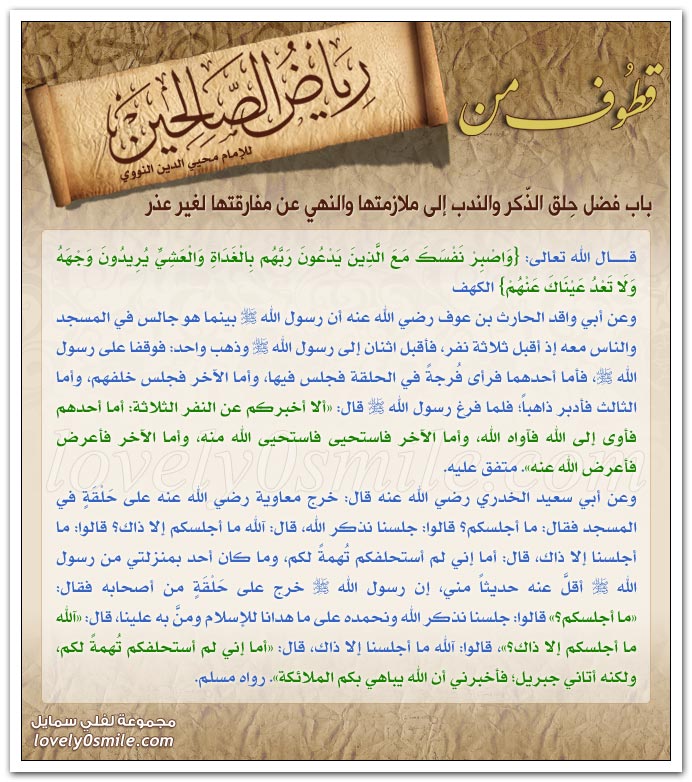 قطوف من
رياض الصالحين
للإمام محيي الدين النووي
باب فضل حِلق الذّكر والندب إلى ملازمتها والنهي عن مفارقتها لغير عذر
قـــال الله تعالى: {وَاصْبِرْ نَفْسَكَ مَعَ الَّذِينَ يَدْعُونَ رَبَّهُم بِالْغَدَاةِ وَالْعَشِيِّ يُرِيدُونَ وَجْهَهُ
وَلَا تَعْدُ عَيْنَاكَ عَنْهُمْ} الكهف
وعن أبي واقد الحارث بن عوف رضي الله عنه أن رسول الله ﷺ بينما هو جالس في المسجد
والناس معه إذ أقبل ثلاثة نفر، فأقبل اثنان إلى رسول الله ﷺ وذهب واحد: فوقفا على رسول
الله ﷺ، فأما أحدهما فرأى فُرجةً في الحلقة فجلس فيها، وأما الآخر فجلس خلفهم، وأما
الثالث فأدبر ذاهباً؛ فلما فرغ رسول الله ﷺ قال: «ألا أخبركم عن النفر الثلاثة: أما أحدهم
فأوى إلى الله فآواه الله، وأما الآخر فاستحيى فاستحيى الله منه، وأما الآخر فأعرض
فأعرض الله عنه». متفق عليه.
وعن أبي سعيد الخدري رضي الله عنه قال: خرج معاوية رضي الله عنه على حَلْقَةٍ في
المسجد فقال: ما أجلسكم؟ قالوا: جلسنا نذكر الله، قال: آلله ما أجلسكم إلا ذاك؟ قالوا: ما
أجلسنا إلا ذاك، قال: أما إني لم أستحلفكم تُهمةً لكم، وما كان أحد بمنزلتي من رسول
الله ﷺ أقلَّ عنه حديثاً مني، إن رسول الله ﷺ خرج على حَلْقَةٍ من أصحابه فقال:
«ما أجلسكم؟» قالوا: جلسنا نذكر الله ونحمده على ما هدانا للإسلام ومنَّ به علينا، قال: «آلله
ما أجلسكم إلا ذاك؟»، قالوا: آلله ما أجلسنا إلا ذاك، قال: «أما إني لم أستحلفكم تُهمةً لكم،
ولكنه أتاني جبريل؛ فأخبرني أن الله يباهي بكم الملائكة». رواه مسلم.
lovely0smile.com
مجموعة لفلي سمايل
lovely0smile.com